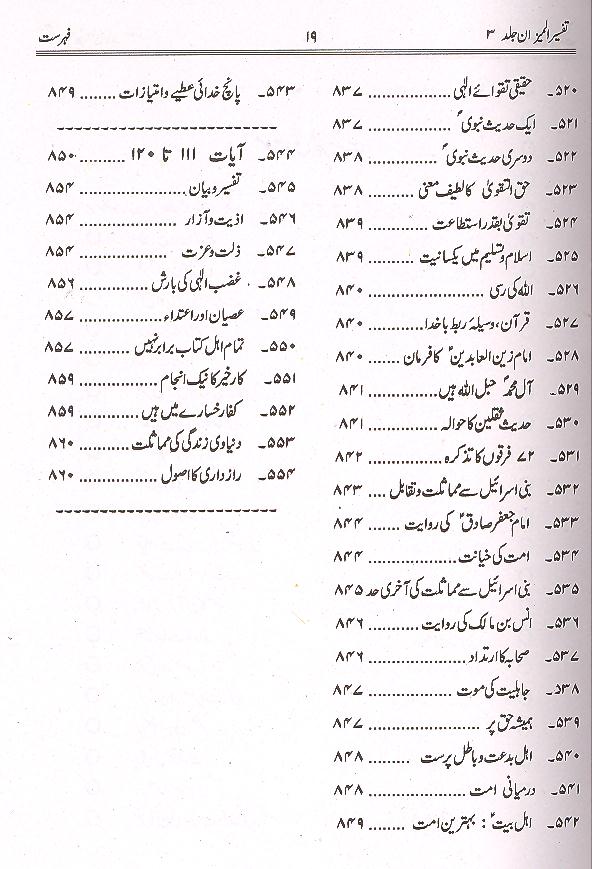 تفسیر المیزان جلد ۳
۱۹
فہرست
۵۲۰۔ حقیقی تقوائے الٰہی ................ ۸۳۷
۵۲۱۔ ایک حدیث نبویؐ ................ ۸۳۷
۵۲۲۔ دوسری حدیث نبویؐ ................ ۸۳۸
۵۲۳۔ حق التقویٰ کا لطیف معنی ........ ۸۳۸
۵۲۴۔ تقویٰ بقدر استطاعت ............ ۸۳۹
۵۲۵۔ اسلام و تسلیم میں یکسانیت ........ ۸۳۹
۵۲۶۔ اللہ کی رسی .................... ۸۴۰
۵۲۷۔ قرآن، وسیلۂ ربط باخدا ........... ۸۴۰
۵۲۸۔ امام زین العابدینؑ کا فرمان ...... ۸۴۰
۵۲۹۔ آل محمدؐ حبل اللہ ہیں ............ ۸۴۱
۵۳۰۔ حدیث ثقلین کا حوالہ ............ ۸۴۱
۵۳۱۔ ۷۲ فرقوں کا تذکرہ .............. ۸۴۲
۵۳۲۔ بنی اسرائیل سے مماثلت و تقابل .... ۸۴۳
۵۳۳۔ امام جعفر صادقؑ کی روایت ....... ۸۴۴
۵۳۴۔ امت کی خیانت .................. ۸۴۴
۵۳۵۔ بنی اسرائیل سے مماثلت کی آخری حد ۸۴۵
۵۳۶۔ انس بن مالک کی روایت ........... ۸۴۶
۵۳۷۔ صحابہ کا ارتداد .................. ۸۴۶
۵۳۸۔ جاہلیت کی موت ................ ۸۴۷
۵۳۹۔ ہمیشہ حق پر .................... ۸۴۷
۵۴۰۔ اہل بدعت و باطل پرست ......... ۸۴۸
۵۴۱۔ درمیانی امت .................. ۸۴۸
۵۴۲۔ اہل بیتؑ : بہترین امت ........ ۸۴۹
۵۴۳۔ پانچ خدائی عطیے و امتیازات ........ ۸۴۹
۵۴۴۔ آیات ۱۱۱ تا ۱۲۰ .......... ۸۵۰
۵۴۵۔ تفسیر و بیان .................... ۸۵۴
۵۴۶۔ اذیت و آزار .................. ۸۵۴
۵۴۷۔ ذلت و عزت .................. ۸۵۴
۵۴۸۔ غضب الٰہی کی بارش ............ ۸۵۶
۵۴۹۔ عصیان اور اعتداء .............. ۸۵۷
۵۵۰۔ تمام اہل کتاب برابر نہیں ........... ۸۵۷
۵۵۱۔ کار خیر کا نیک انجام .............. ۸۵۹
۵۵۲۔ کفار خسارے میں ہیں ............ ۸۵۹
۵۵۳۔ دنیاوی زندگی کی مماثلت .......... ۸۶۰
۵۵۴۔ رازداری کا اصول ................ ۸۶۰